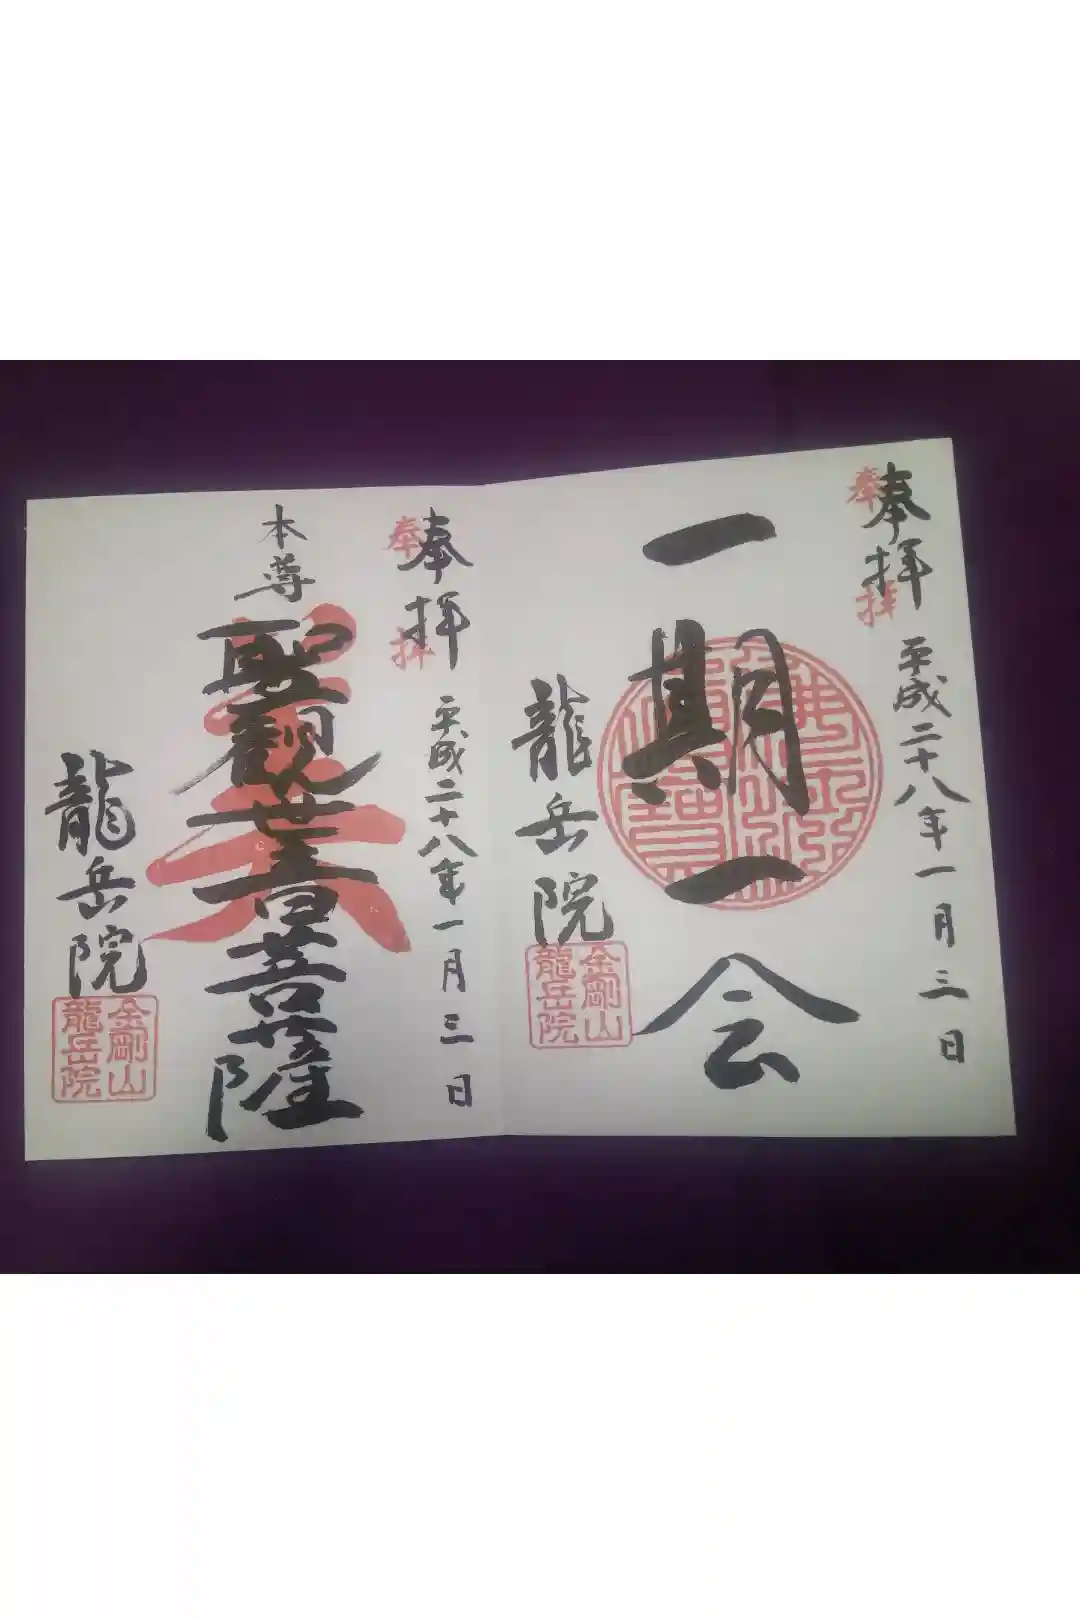 奉拝
奉拝
平成二十八年一月三日
一期一会
龍岳院
金剛山
龍岳院
奉拝
奉拝
平成二十八年一月三日
本尊
聖観世音菩薩
龍岳院
金剛山
龍岳院